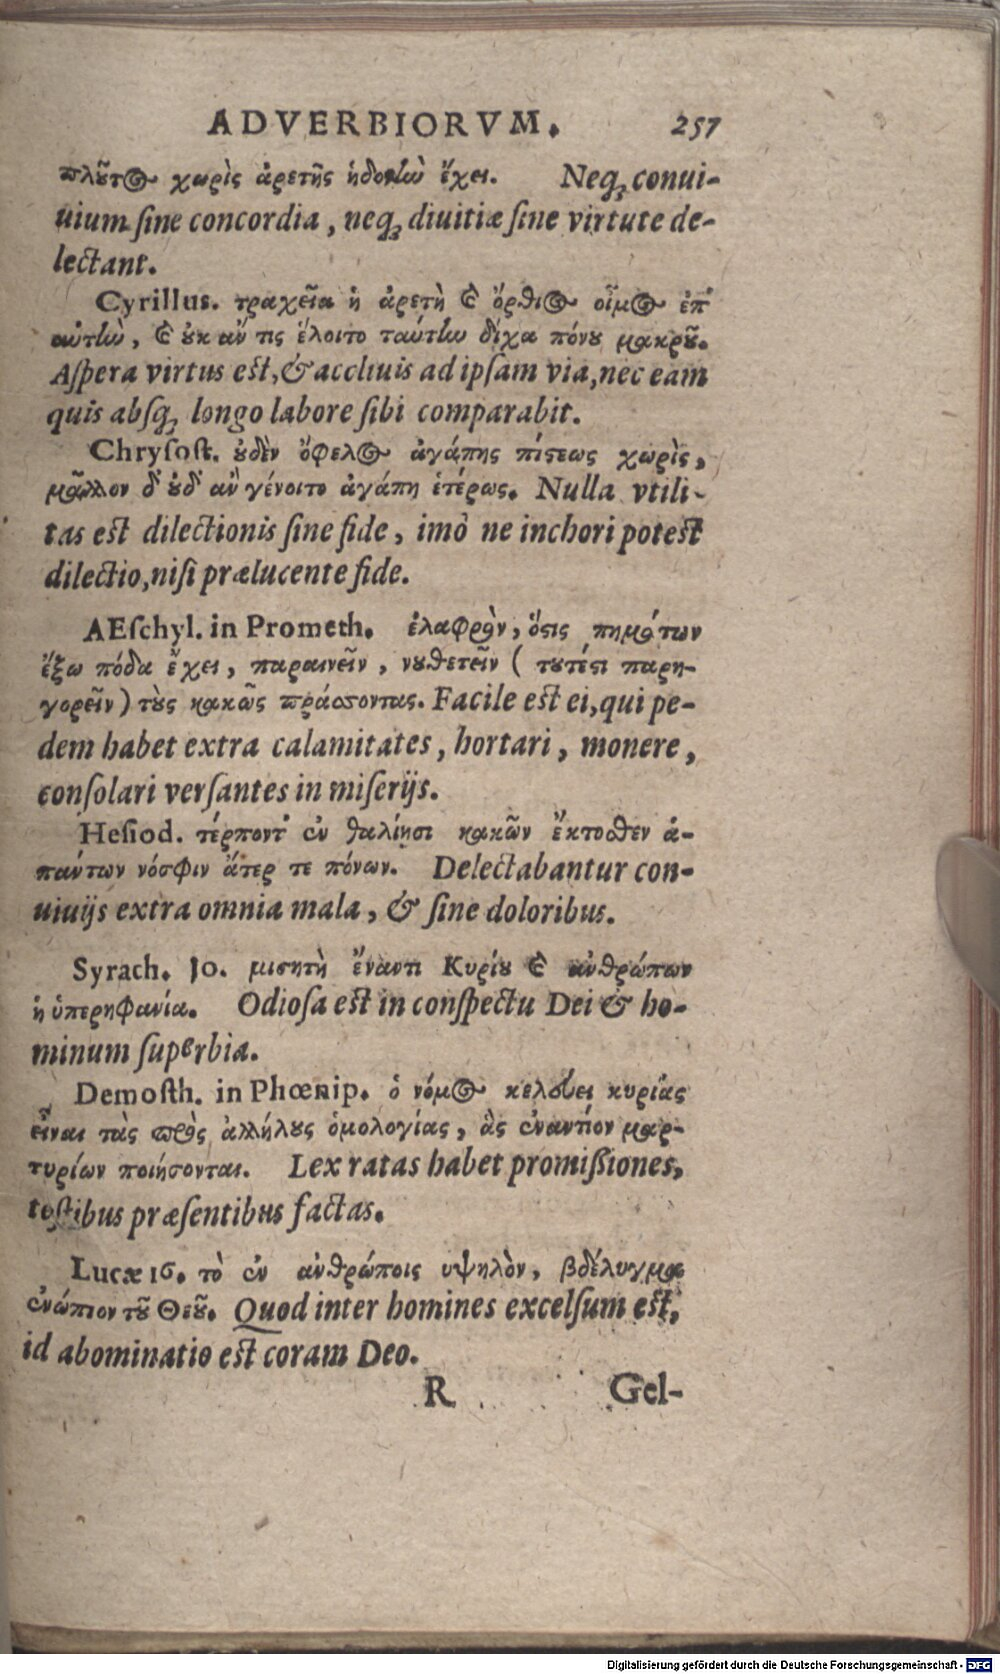 ADVERBIORVM. 257
πλοῦτος χωρὶς ἀρετῆς ἡδονὴν ἔχει. Neq; conui-
uium sine concordia, neq; diuitiæ sine virtute de-
lectant.
Cyrillus. τραχεῖα ἡ ἀρετὴ ϗ ὄρθιος οἶμος ἐπ'
αὐτὴν, ϗ ȣκ ἄν τις ἕλοιτο ταύτην δίχα πόνȣ μακρȣ͂.
Aspera virtus est, & accliuis ad ipsam via, nec eam
quis absq; longo labore sibi comparabit.
Chrysost. ȣδὲν ὄφελος ἀγάπης πίστεως χωρὶς,
μᾶλλον δ' ȣδ' ἂν γένοιτο ἀγάπη ἑτέρως. Nulla vtili-
tas est dilectionis sine fide, imò ne inchori potest
dilectio, nisi prælucente fide.
AEschyl. in Prometh. ἐλαφρὸν, ὅστις πημάτων
ἔξω πόδα ἔχει, παραινεῖν, νȣθετεῖν ( τȣτέστι παρη-
γορεῖν) τȣ̀ς κακῶς πράσσοντας. Facile est ei, qui pe-
dem habet extra calamitates, hortari, monere,
consolari versantes in miserijs.
Hesiod. τέρποντ' ἐν θαλίῃσι κακῶν ἔκτοσθεν ἁ-
πάντων νόσφιν ἄτερ τε πόνων. Delectabantur con-
uiuijs extra omnia mala, & sine doloribus.
Syrach. 10. μισητὴ ἔναντι Κυρίȣ ϗ ἀνθρώπων
ἡ ὑπερηφανία. Odiosa est in conspectu Dei & ho-
minum superbia.
Demosth. in Phœnip. ὁ νόμος κελεύει κυρίας
εἶναι τὰς πρὸς ἀλλήλȣς ὁμολογίας, ἃς ἐναντίον μαρ-
τυρίων ποιήσονται. Lex ratas habet promissiones,
testibus præsentibus factas.
Lucæ 16. τὸ ἐν ἀνθρώποις υψηλὸν, βδέλυγμα
ἐνώπιον τȣ͂ Θεȣ͂. Quod inter homines excelsum est,
id abominatio est coram Deo.
R Gel-
Digitalisierung gefördert durch die Deutsche Forschungsgemeinschaft - DFG